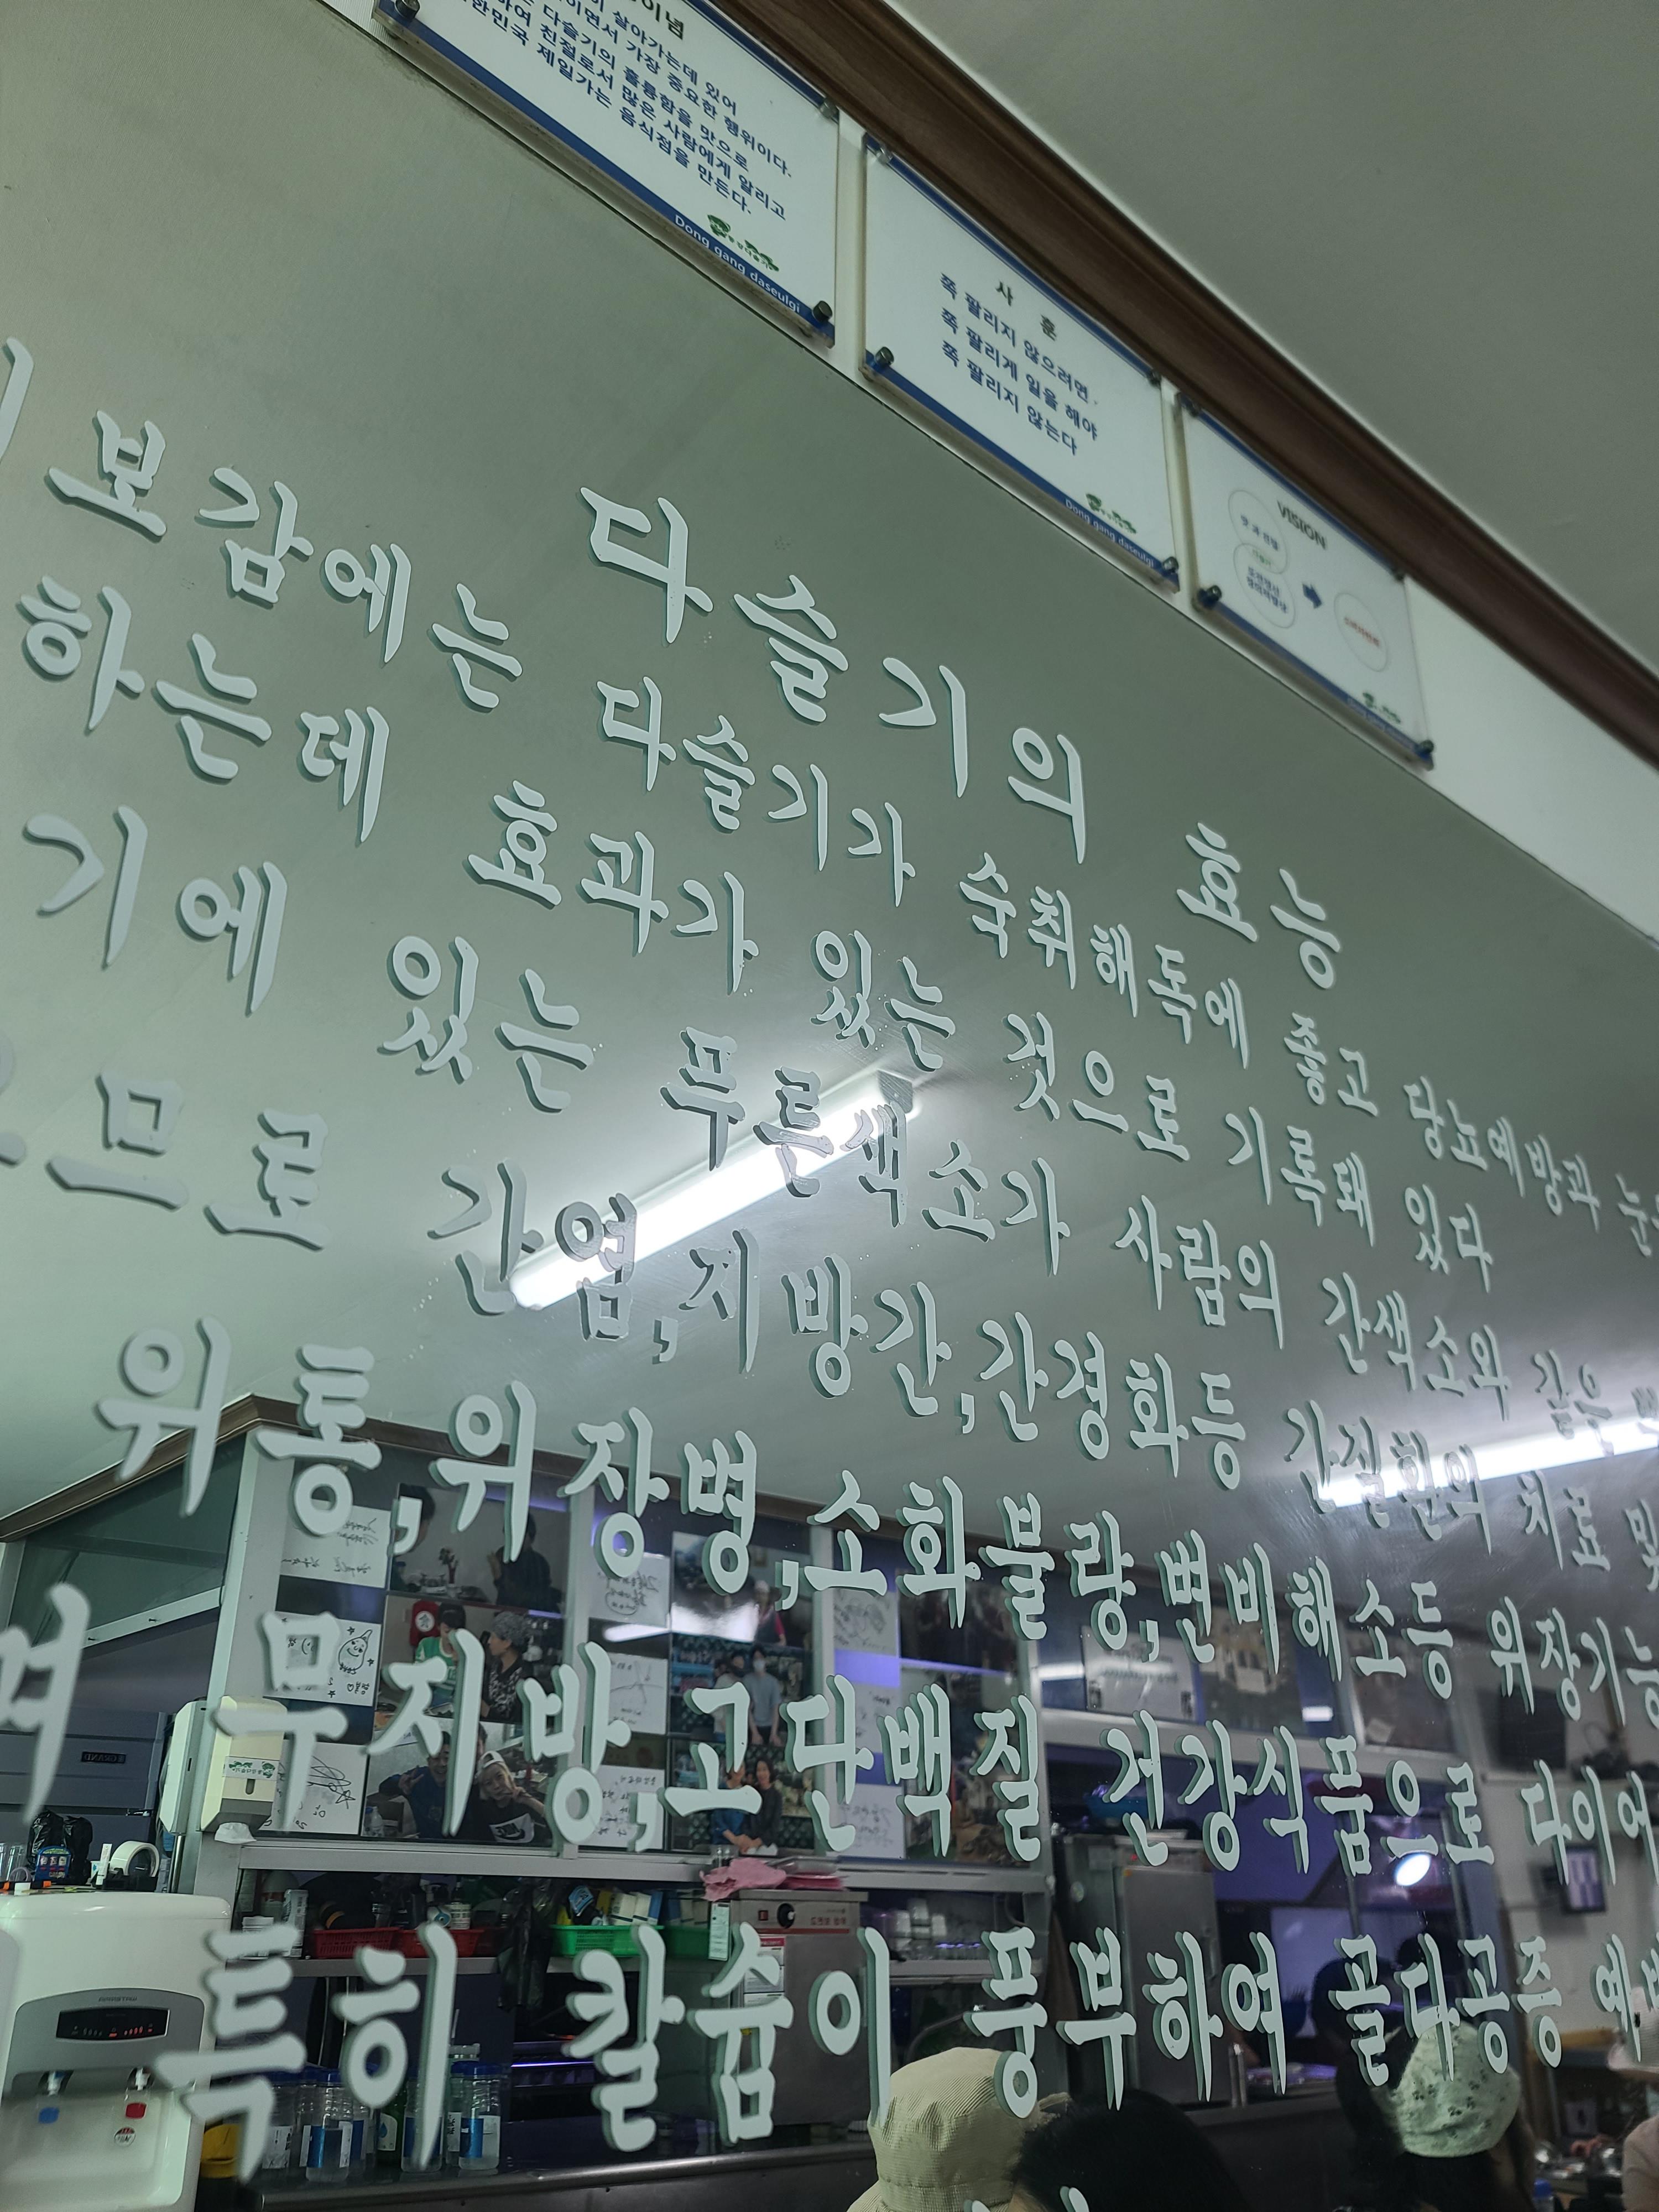 살아가는데 있어
이면서 가장 중요한 행위이다.
다슬기의 훌륭함을 맛으로
하여 친절로서 많은 사람에게 알리고
대한민국 제일가는 음식점을 만든다.
Dong gang daseulgi
사 훈
쪽 팔리지 않으려면,
쪽 팔리게 일을 해야
쪽 팔리지 않는다
Dong gang daseulgi
VISION
다슬기의 효능
보감에는 다슬기가 숙취해독에 좋고 당뇨예방과
하는데 효과가 있는 것으로 기록돼 있다
기에 있는 푸른색소가 사람의 간색소와 같은
으므로 간염,지방간,간경화등 간질환의 치료 및
위통,위장병,소화불량,변비해소등 위장기능
며 무지방,고단백질 건강식품으로 다이어
특히 칼슘이 풍부하여 골다공증